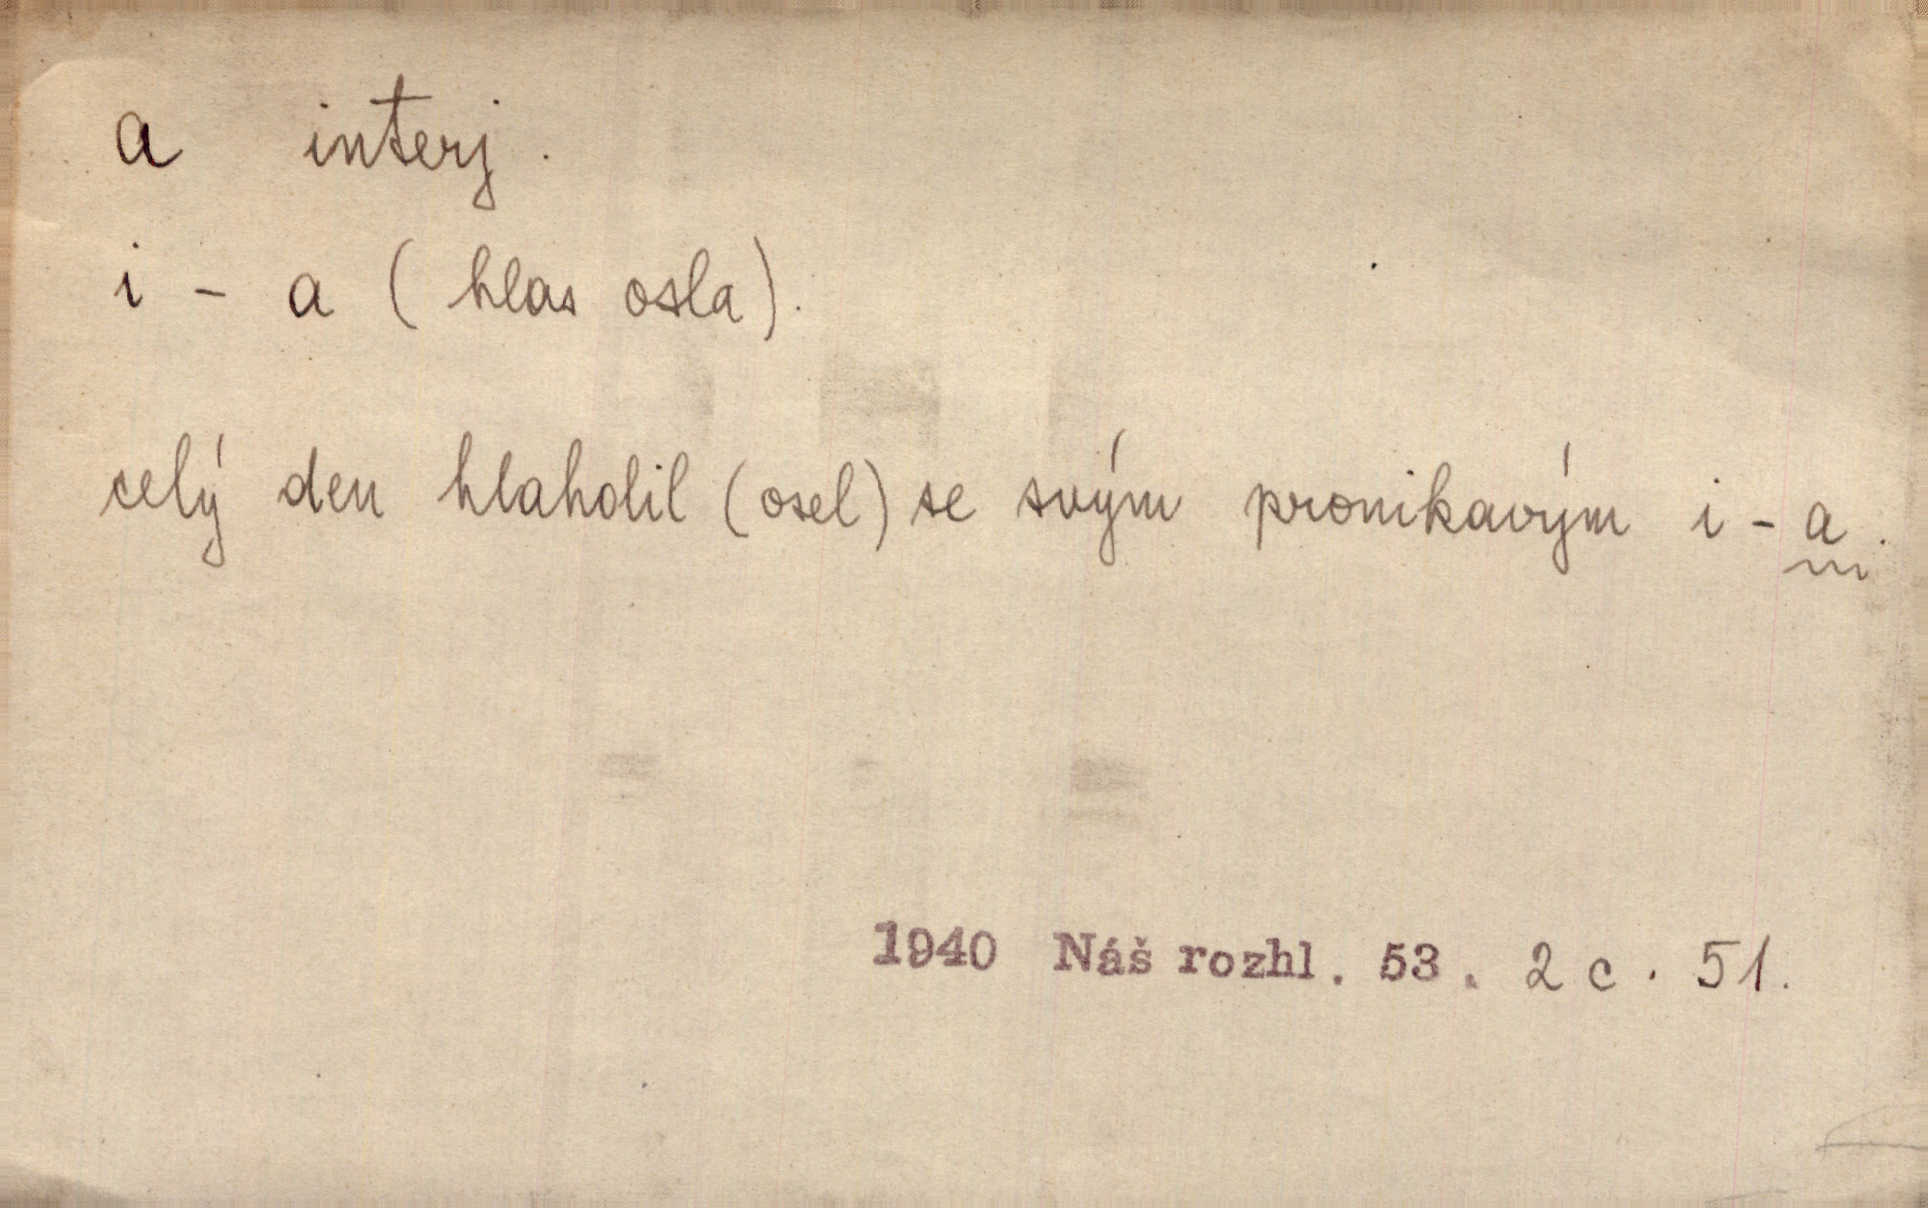 a interj.
i - a (hlas osla).
celý den hlaholil (osel) se svým pronikavým i - a.
1940 Náš rozhl. 53. 2 c. 51.